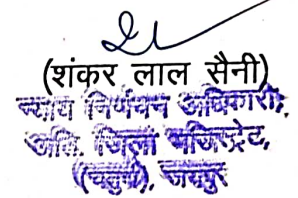 (शंकर लाल सैनी)
न्याय निर्णयन अधिकारी,
अति. जिला मजिस्ट्रेट,
(चतुर्थ), जयपुर